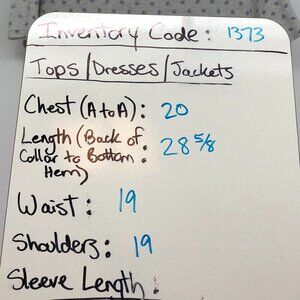 Inventory Code: 1373
Tops/Dresses/Jackets
Chest (A to A): 20
Length (Back of
Collar to Bottom : 28 5/8
Hem)
Waist: 19
Shoulders: 19
Sleeve Length: